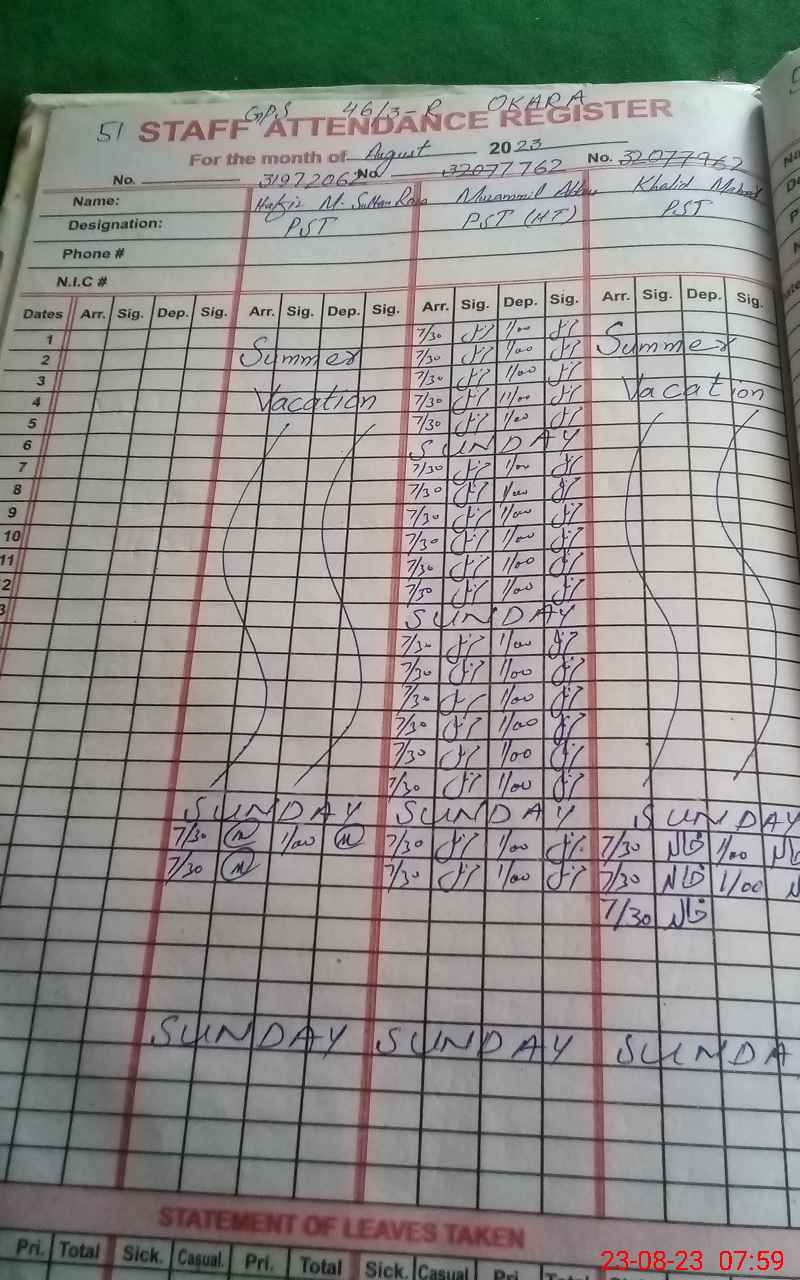 GPS 46/3-R OKARA
51 STAFF ATTENDANCE REGISTER
For the month of August 2023
No. 31972062 No. 32077762 No. 32077962
Name: Hafiz M. Sultan Muzammil Khalid
Designation: PST PST (HT) PST
Phone #
N.I.C #
Dates Arr. Sig. Dep. Sig. Arr. Sig. Dep. Sig. Arr. Sig. Dep. Sig. Arr. Sig. Dep. Sig.
1 7/30 1/00
2 Summer 7/30 1/00 Summer
3 7/30 1/00
4 Vacation 7/30 1/00 Vacation
5 7/30 1/00
6 SUNDAY
7 7/30 1/00
8 7/30 1/00
9 7/30 1/00
10 7/30 1/00
11 7/30 1/00
2 7/30 1/00
3 SUNDAY
7/30 1/00
7/30 1/00
7/30 1/00
7/30 1/00
7/30 1/00
7/30 1/00
SUNDAY SUNDAY SUNDAY
7/30 m 1/00 m 7/30 1/00 7/30 1/00
7/30 m 7/30 1/00 7/30 1/00
7/30
SUNDAY SUNDAY SUNDA
STATEMENT OF LEAVES TAKEN
Pri. Total Sick. Casual. Pri. Total Sick. Casual Pri.
23-08-23 07:59